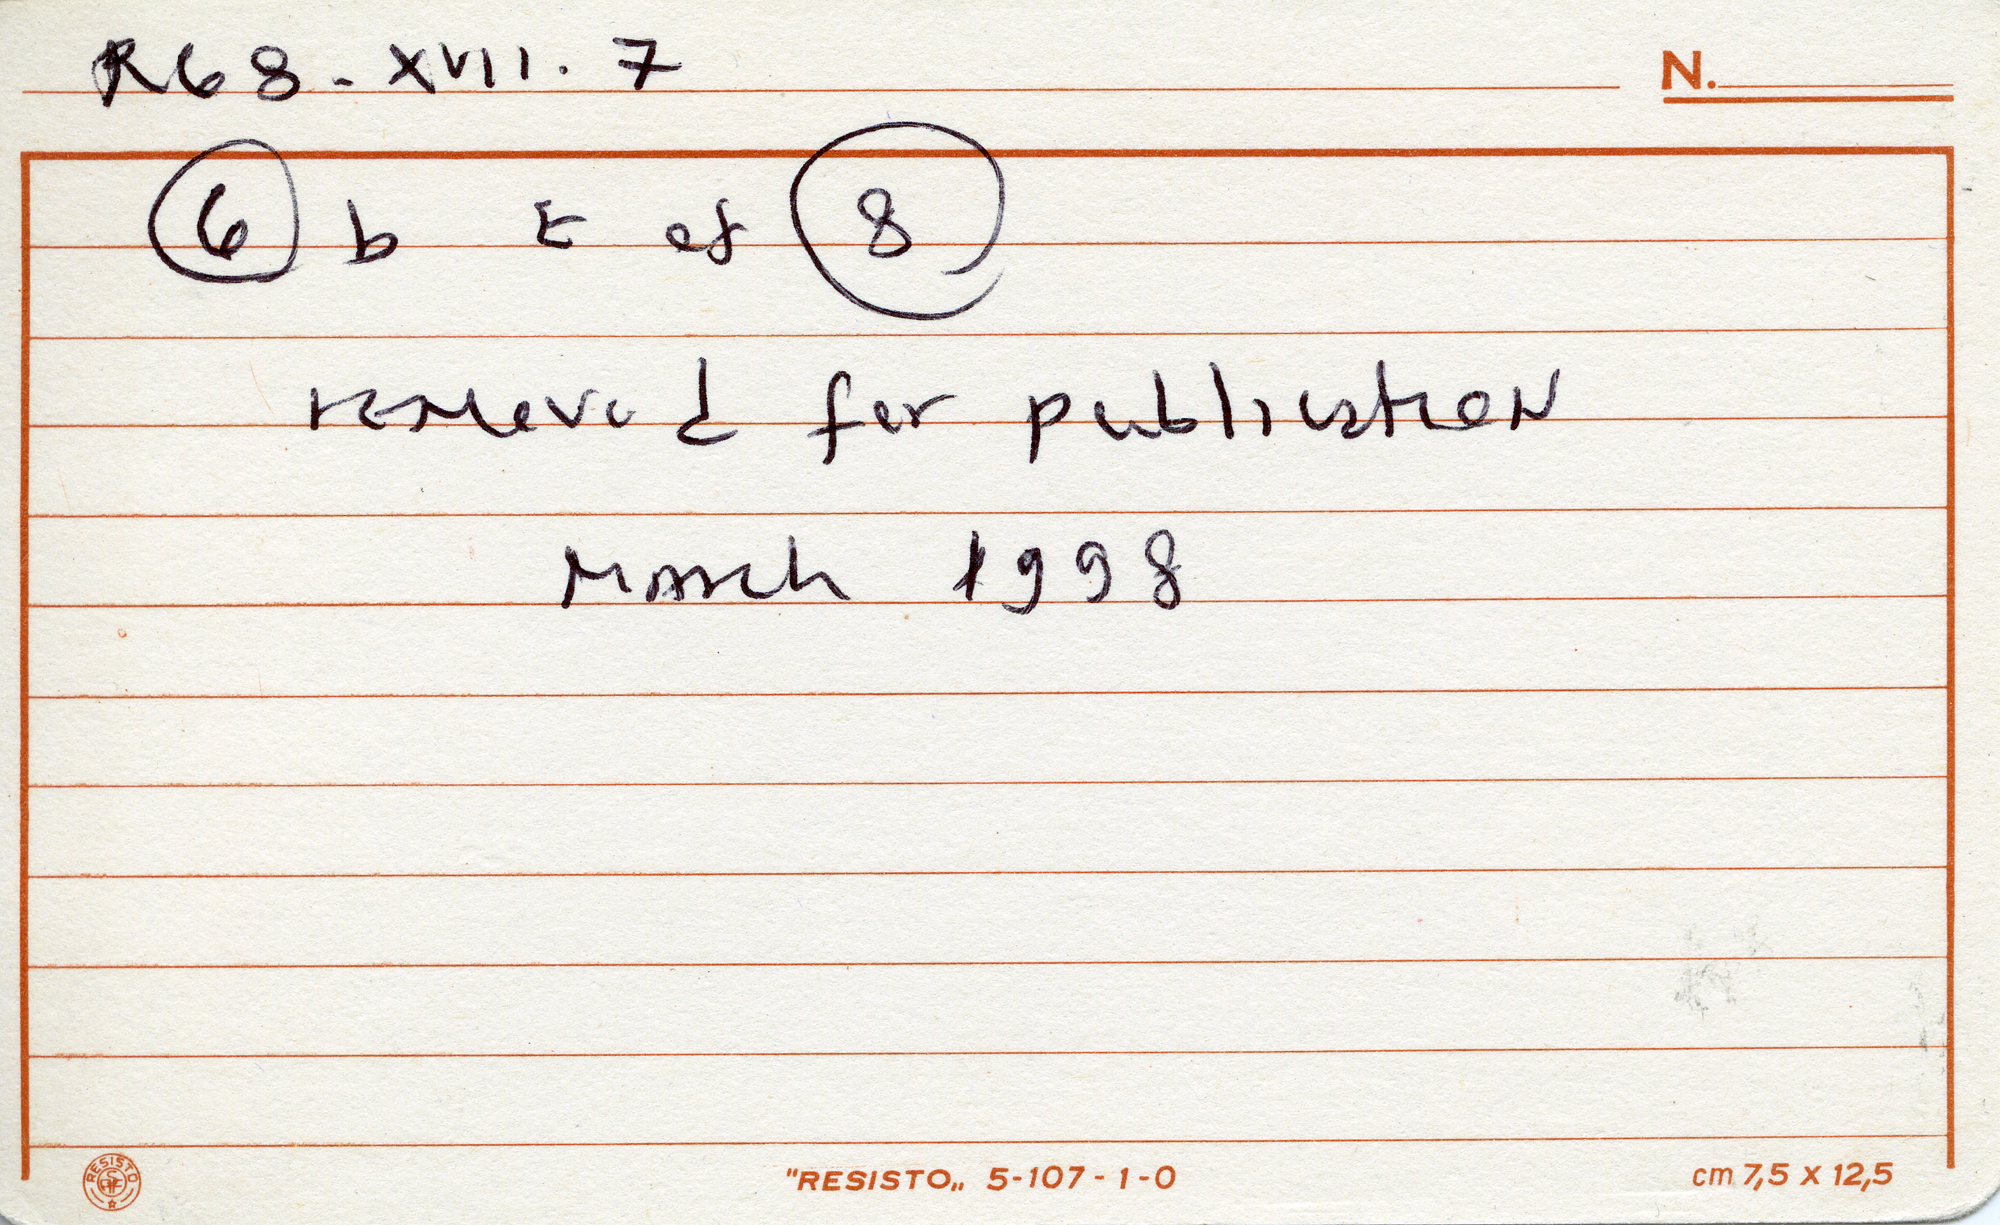 R68 - XVII. 7
N.
6 b t of 8
removed for publication
March 1998
RESISTO
"RESISTO„ 5-107-1-0
cm 7,5 x 12,5